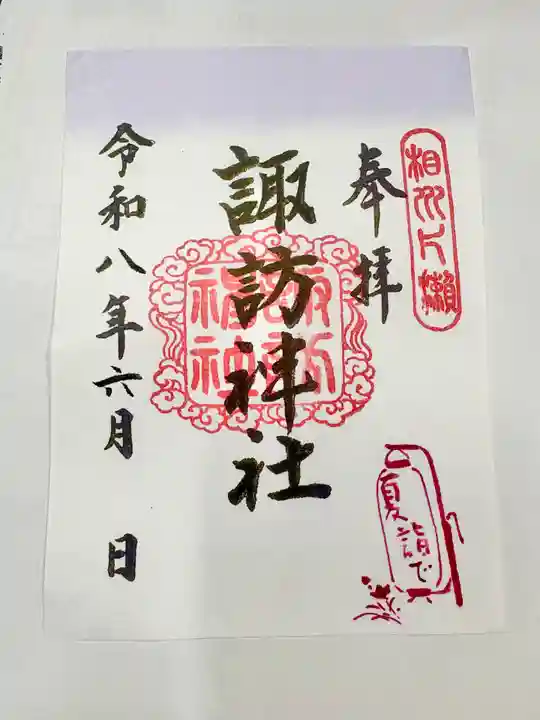 相州片瀬
奉拝
諏訪神社
令和八年六月　日
夏詣で